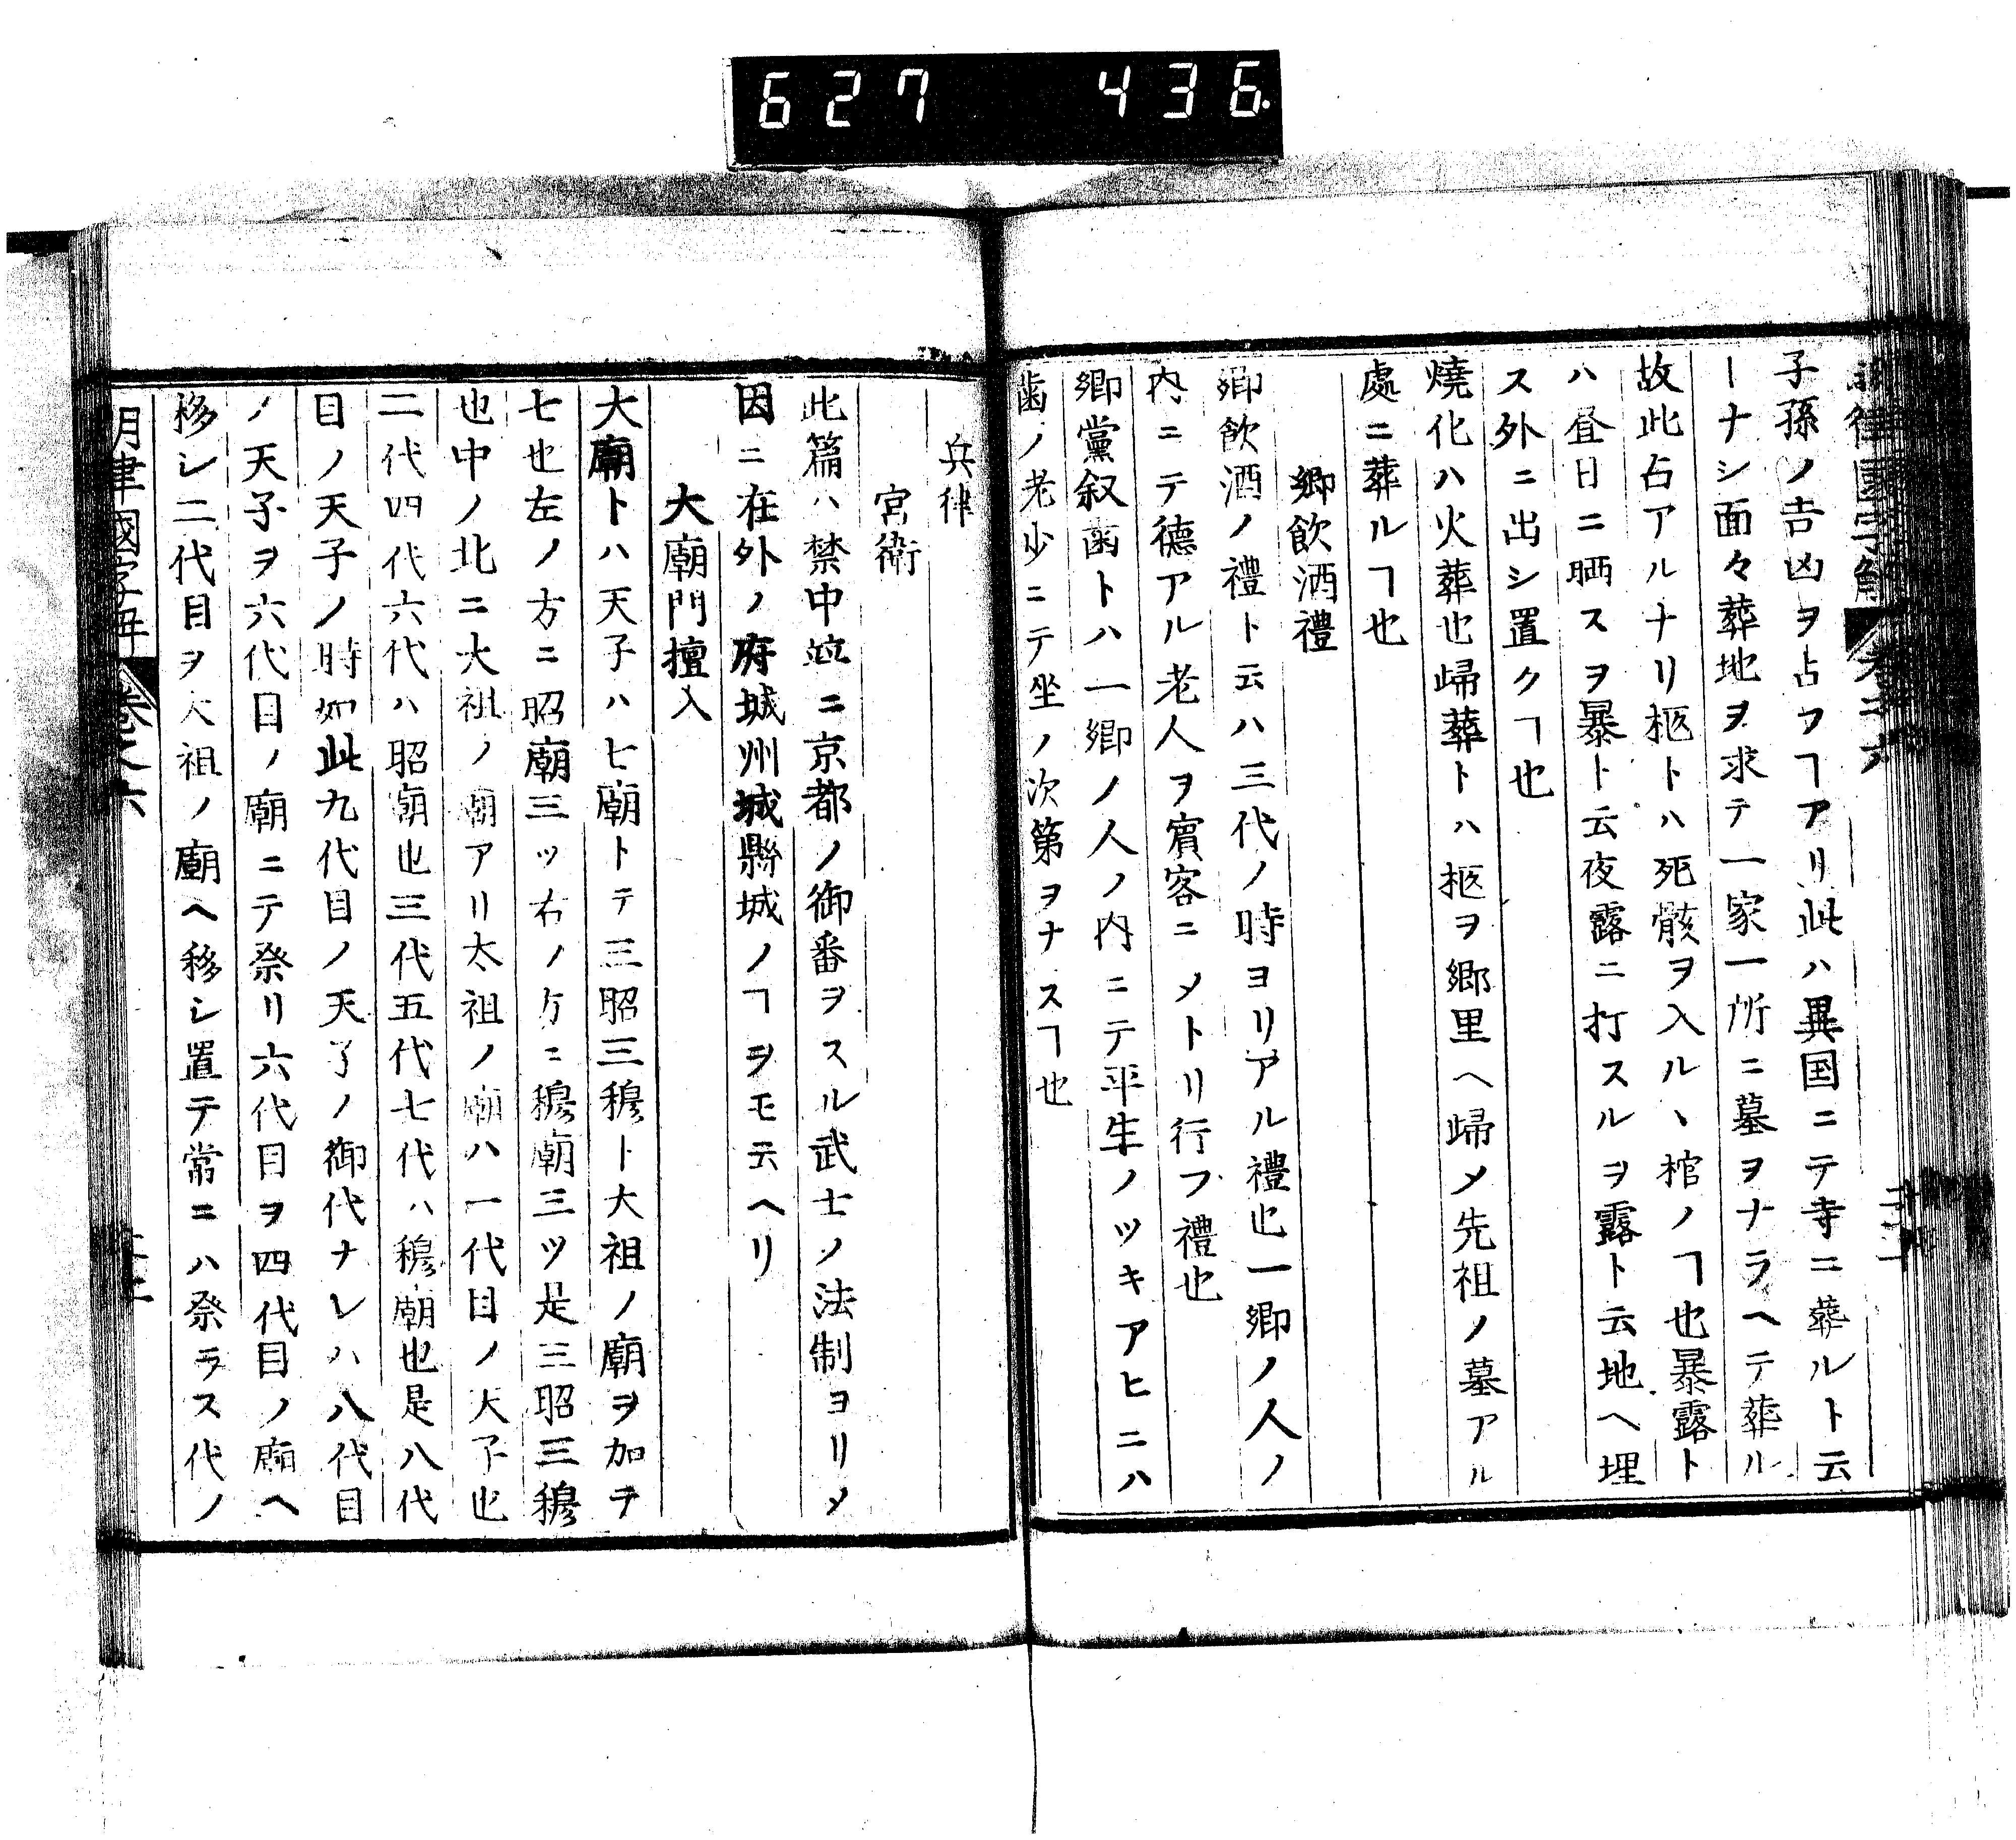 627 436
子孫ノ吉凶ヲ占フヿアリ此ハ異国ニテ寺ニ葬ルト云
ーナシ面々葬地ヲ求テ一家一所ニ墓ヲナラヘテ葬ル
故此占アルナリ柩トハ死骸ヲ入ルヽ棺ノヿ也暴露ト
ハ昼日ニ晒スヲ暴ト云夜露ニ打スルヲ露ト云地ヘ埋
ス外ニ出シ置クヿ也
燒化ハ火葬也歸葬トハ柩ヲ郷里ヘ歸メ先祖ノ墓アル
處ニ葬ルヿ也
郷飲酒禮
郷飲酒ノ禮ト云ハ三代ノ時ヨリアル禮也一郷ノ人ノ
内ニテ德アル老人ヲ賓客ニメトリ行フ禮也
郷黨叙齒トハ一郷ノ人ノ内ニテ平生ノツキアヒニハ
歯ノ老少ニテ坐ノ次第ヲナスヿ也
兵律
宮衛
此篇ハ禁中並ニ京都ノ御番ヲスル武士ノ法制ヨリメ
因ニ在外ノ府城州城縣城ノヿヲモ云ヘリ
大廟門擅入
大廟トハ天子ハ七廟トテ三昭三穆ト大祖ノ廟ヲ加テ
七也左ノ方ニ昭廟三ツ右ノ方ニ穆廟三ツ是三昭三穆
也中ノ北ニ大祖ノ廟アリ太祖ノ廟ハ一代目ノ天子也
二代四代六代ハ昭廟也三代五代七代ハ穆廟也是八代
目ノ天子ノ時如此九代目ノ天子ノ御代ナレハ八代目
ノ天子ヲ六代目ノ廟ニテ祭リ六代目ヲ四代目ノ廟ヘ
移シ二代目ヲ大祖ノ廟ヘ移シ置テ常ニハ祭ラス代ノ
明律國字解 卷之六